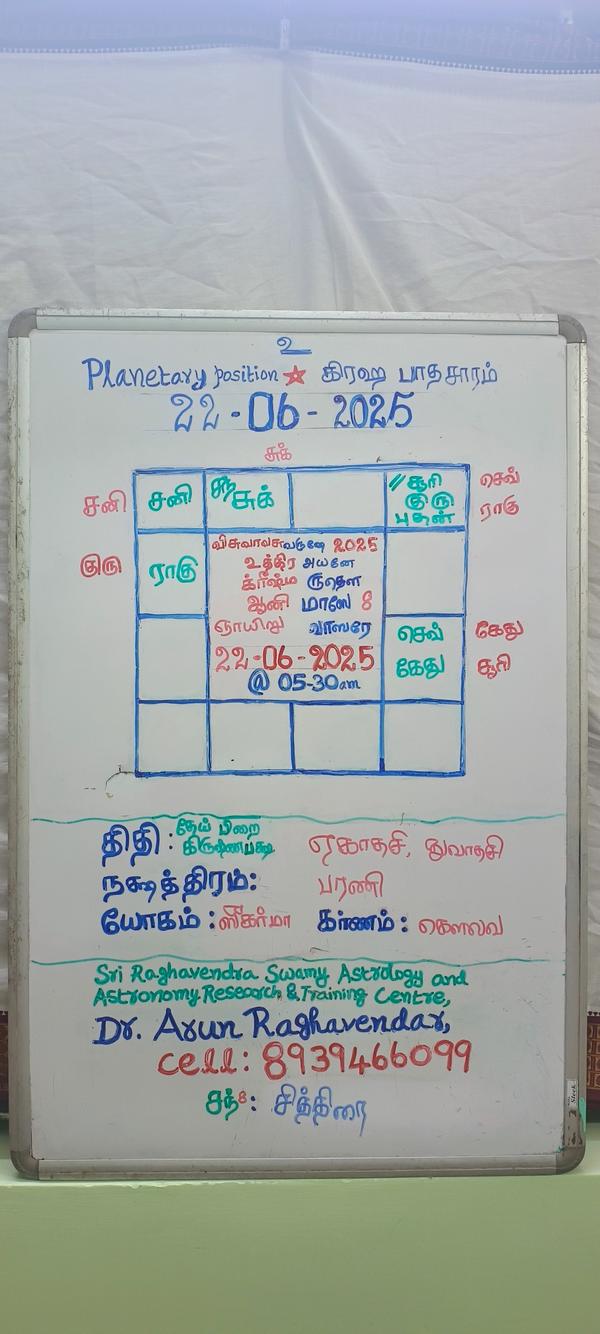 உ
Planetary position ★ கிரஹ பாதசாரம்
22-06-2025
சுக்
சனி சனி சந் சுக் // சூரி செவ்
குரு ராகு
புதன்
விசுவாவசுவருஷே 2025
குரு ராகு உத்திர அயனே
க்ரீஷ்ம ருதௌ
ஆனி மாஸே 8
ஞாயிறு வாஸரே செவ் கேது
22-06-2025 கேது சூரி
@ 05-30am
திதி: தேய் பிறை ஏகாதசி, துவாதசி
கிருஷ்ணபக்ஷ
நக்ஷத்திரம்: பரணி
யோகம்: ஸீகர்மா கர்ணம்: கௌலவ
Sri Raghavendra Swamy Astrology and
Astronomy Research & Training Centre,
Dr. Arun Raghavendar,
cell: 8939466099
சந்8: சித்திரை